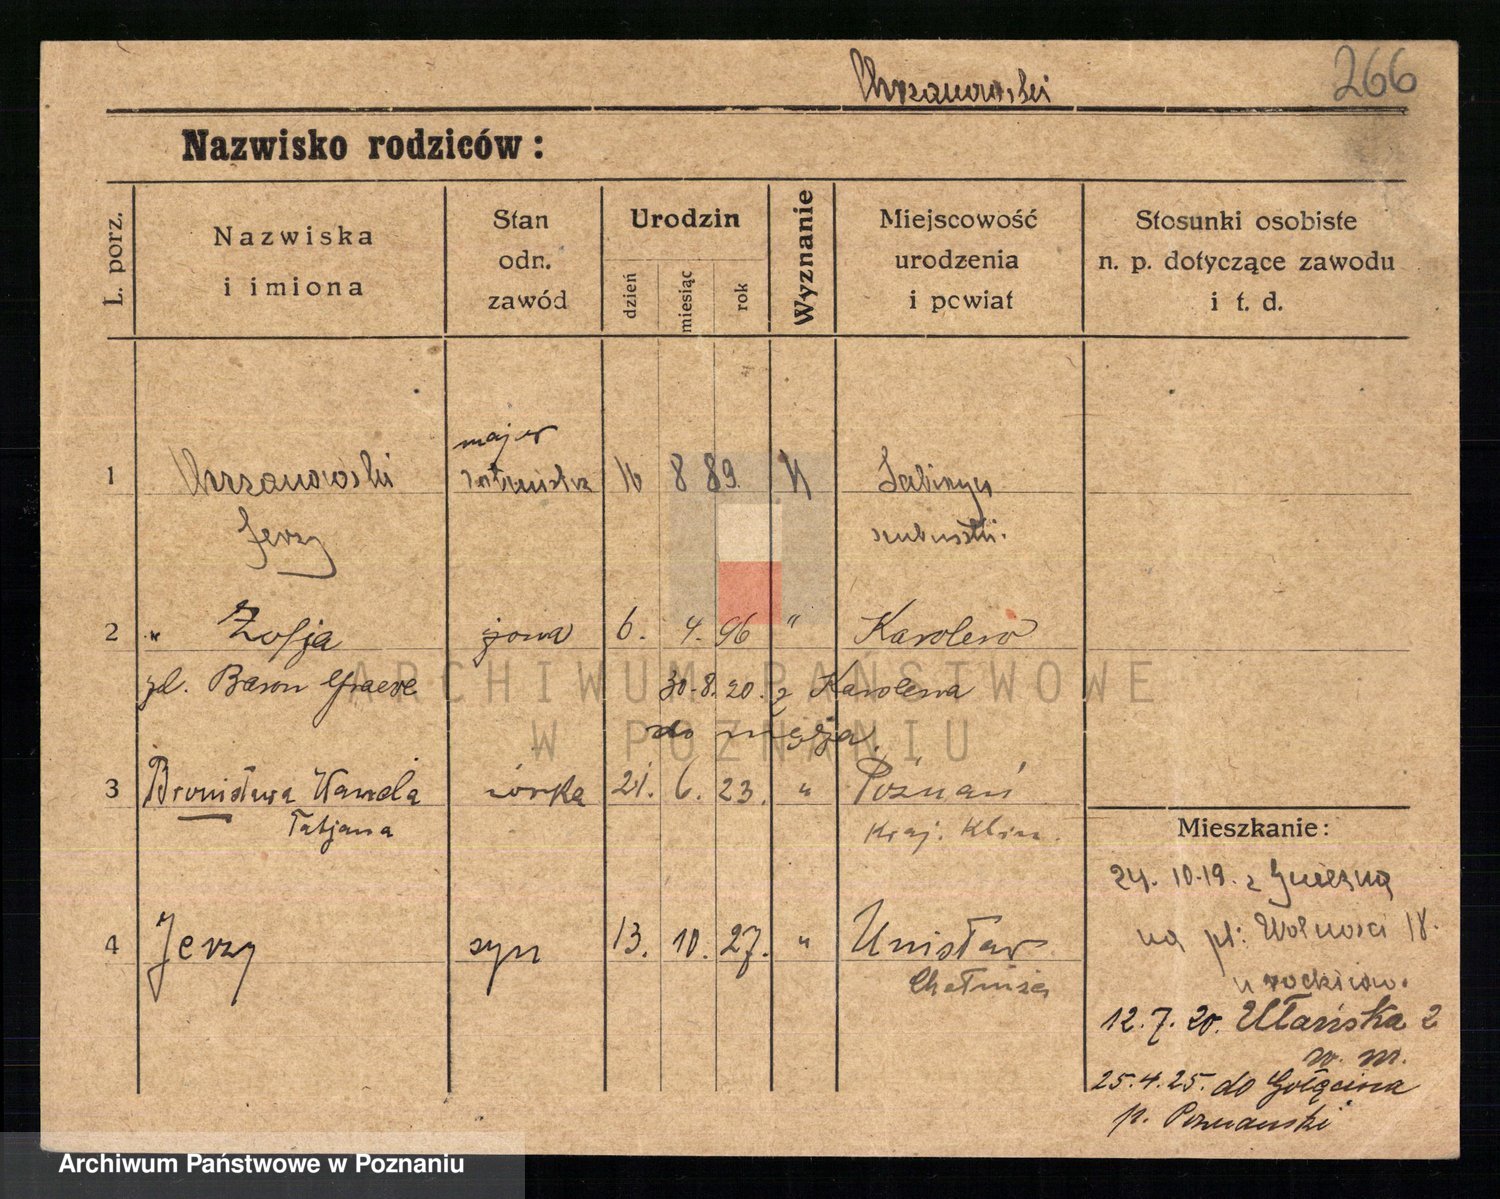 Chrzanowski
266
Nazwisko rodziców:
L. porz.
Nazwiska
i imiona
Stan
odn.
zawód
Urodzin
dzień
miesiąc
rok
Wyznanie
Miejscowość
urodzenia
i powiat
Stosunki osobiste
n. p. dotyczące zawodu
i t. d.
major
1 Chrzanowski 16 8 89.
Jerzy
2 " Zofja żona 6. 4. 96 " Karolewo
zd. Baron Graeve 30.8.20. z Karolewa
do męża.
3 Bronisława Wanda córka 21. 6. 23. " Poznań
Tatjana
4 Jerzy syn 13. 10. 27. " Unisław
Mieszkanie:
24. 10.19. z Gniezna
na pl: Wolności 18.
12.7.20. Ułańska 2
w. m.
25.4.25. do Gołęcina
p. Poznański
ARCHIWUM PAŃSTWOWE
W POZNANIU
Archiwum Państwowe w Poznaniu